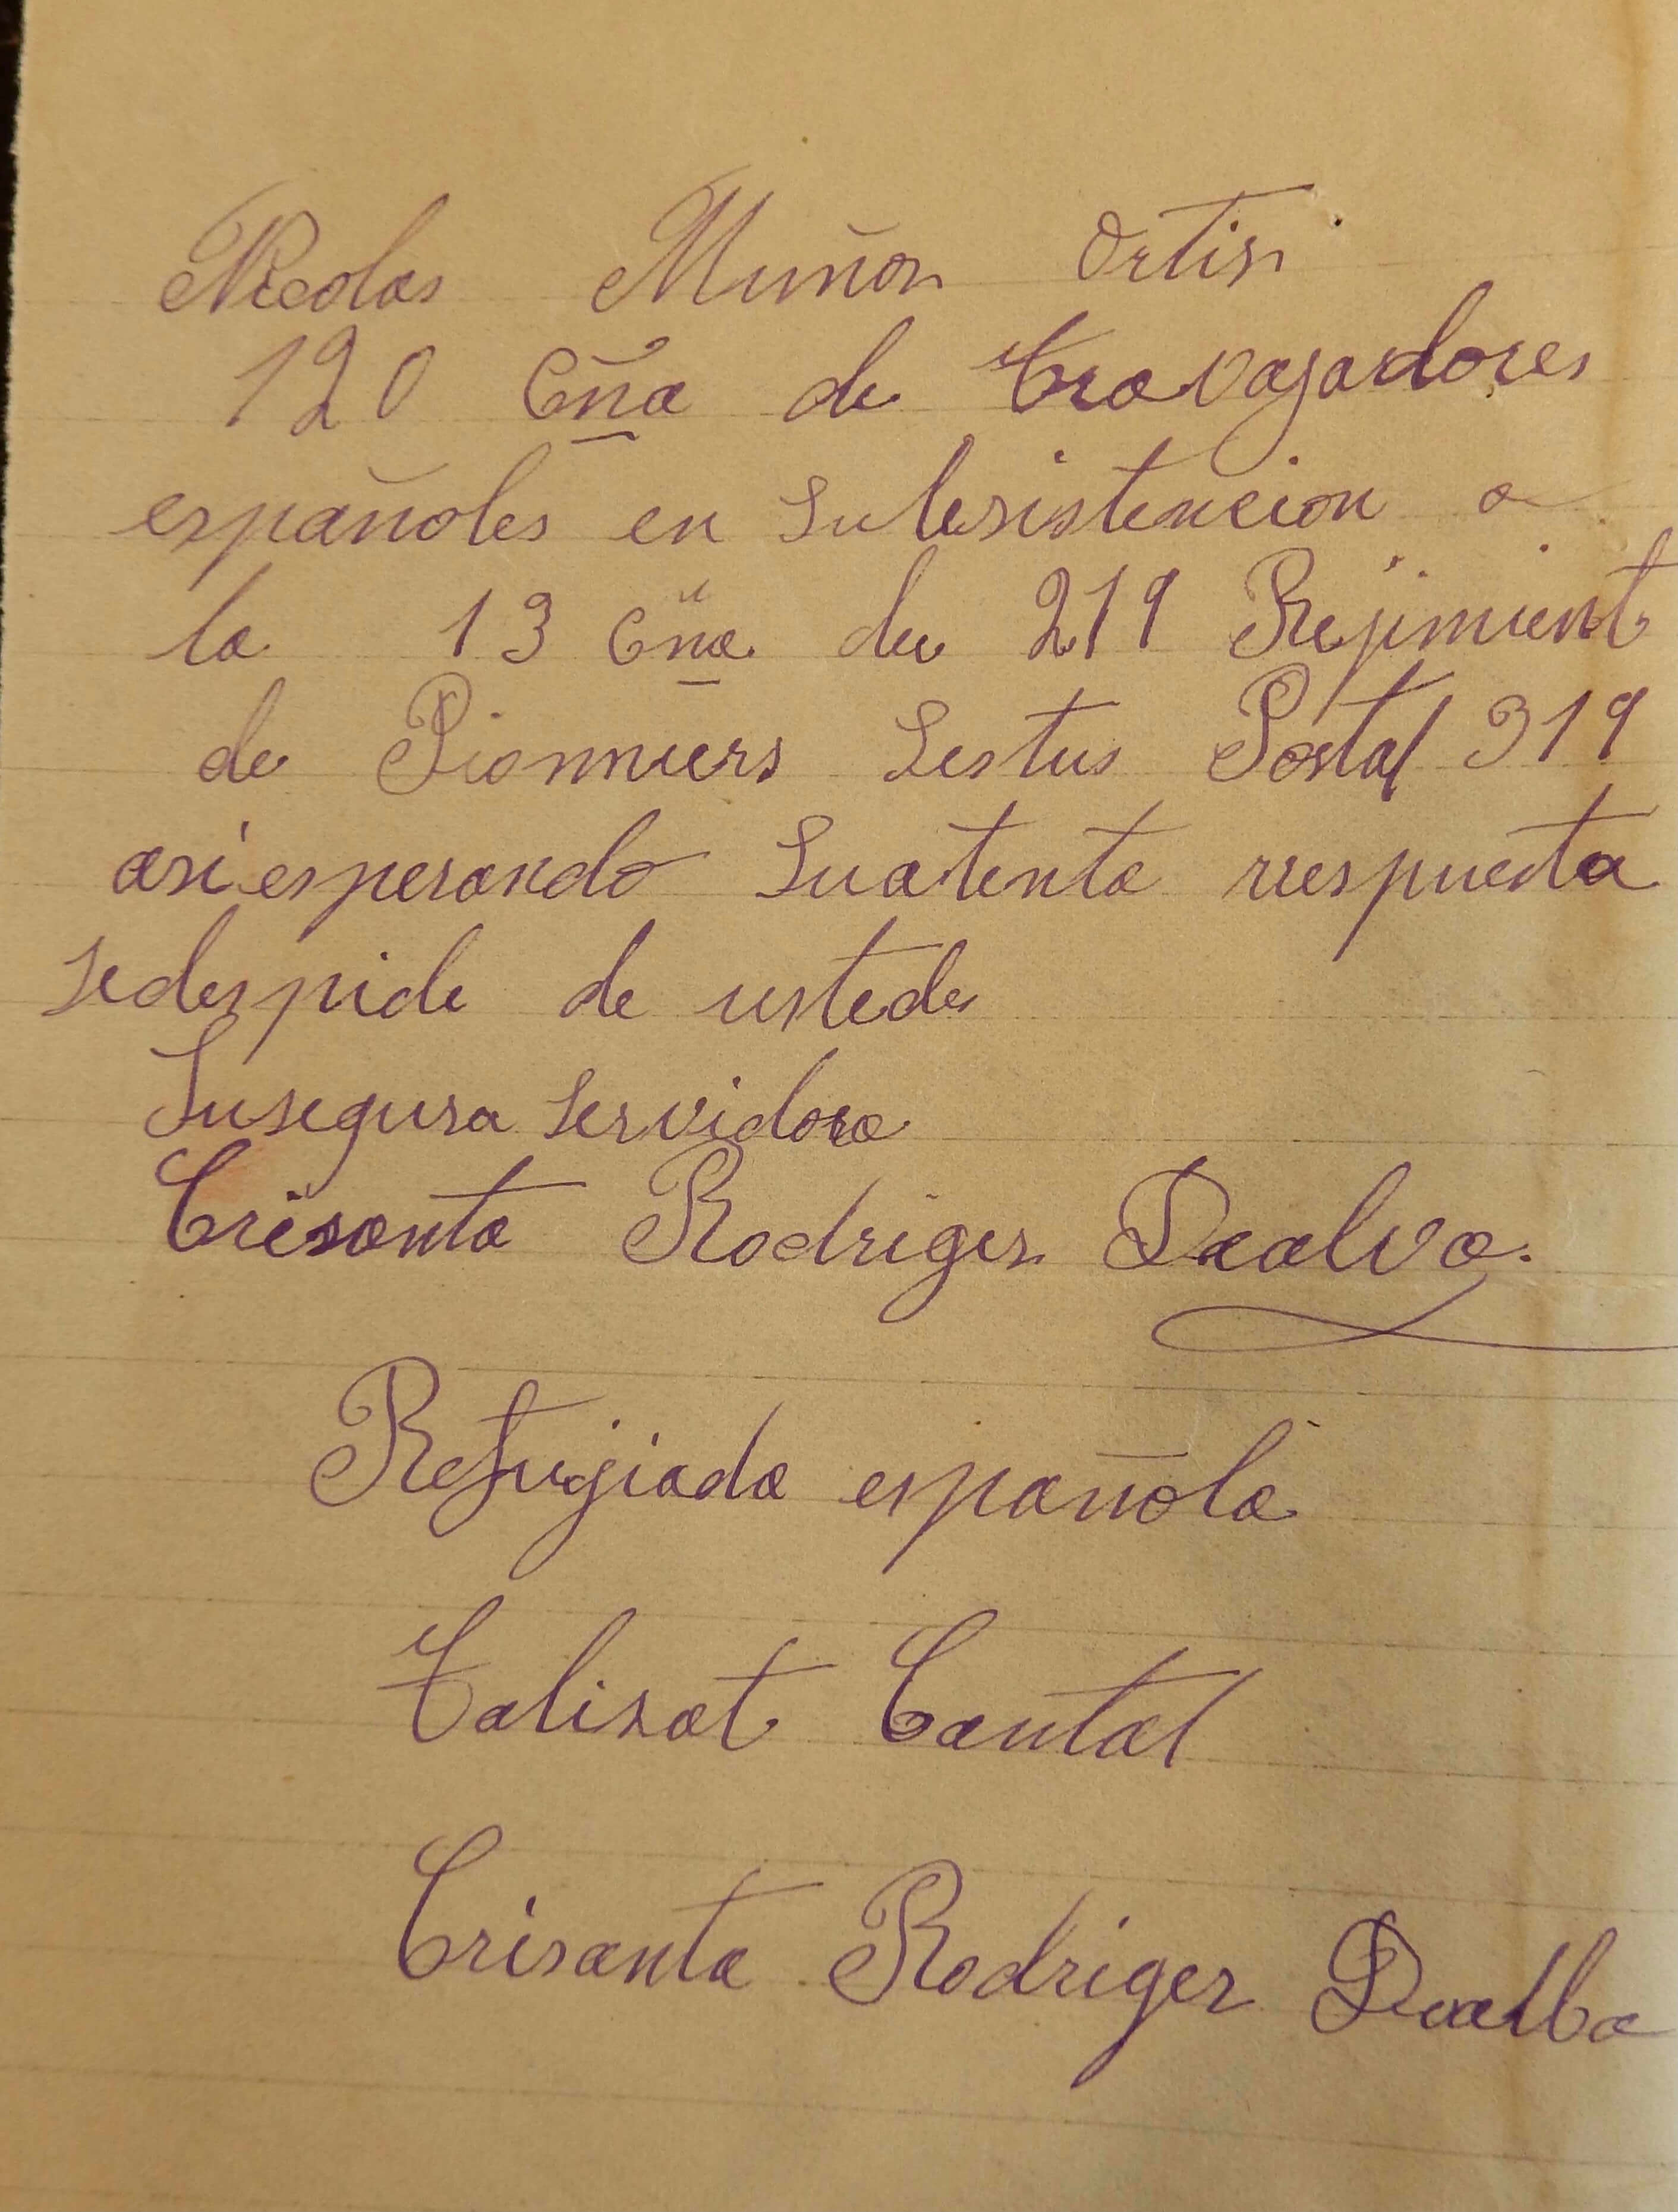 Nicolas Muños Ortis
120 Cña de travajadores
españoles en subsistencion a
la 13 Cña de 219 Rejimient
de Pionniers Sestus Postal 319
asi esperando suatenta rrespuesta
sedespide de ustedes
Susegura servidora
Crisanta Rodriges Dealva.
Refugiada española
Talisat Cantal
Crisanta Rodriger Dealba